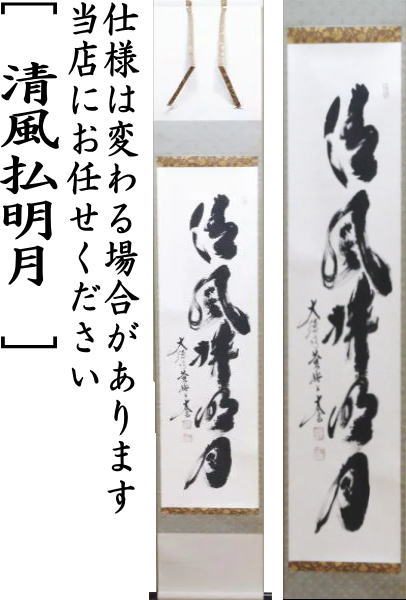 仕様は変わる場合があります
当店にお任せください
[ 清風払明月 ]
清風拂明月
清風拂明月